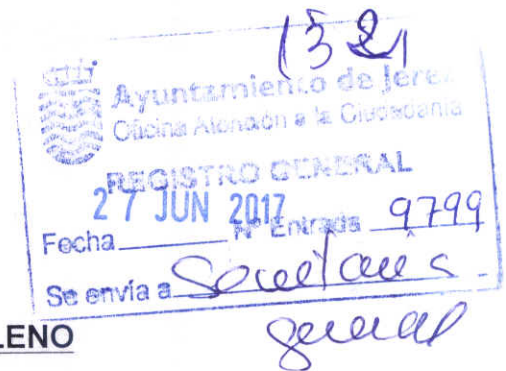 1321
Ayuntamiento de Jere
Oficina Atención a la Ciudadanía
REGISTRO GENERAL
27 JUN 2017
Fecha Nº Entrada 9799
Se envía a Secretaria
general
LENO